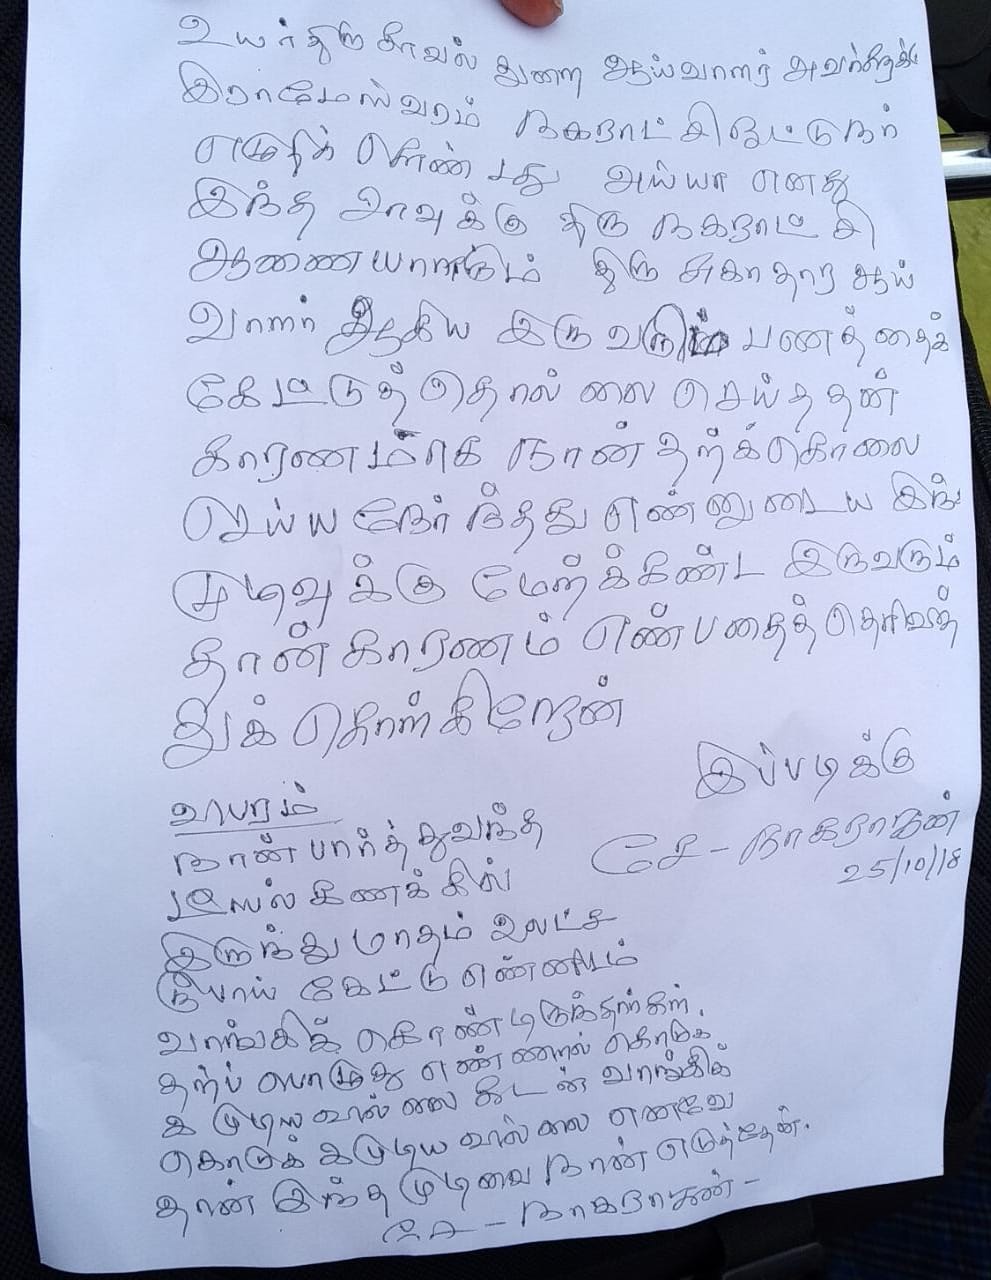 உயர்திரு காவல் துணை ஆய்வாளர் அவர்களுக்கு
இராமேஸ்வரம் நகராட்சி ஓட்டுநர்
எழுதிக் கொண்டது அய்யா எனது
இந்த சாவுக்கு திரு நகராட்சி
ஆணையாளரும் திரு சுகாதார ஆய்
வாளர் ஆகிய இருவரும் பணத்தைக்
கேட்டுத் தொல்லை செய்ததன்
காரணமாக நான் தற்க்கொலை
செய்ய நேர்ந்தது என்னுடைய இந்
முடிவுக்கு மேற்க்கண்ட இருவரும்
தான் காரணம் என்பதைத் தெரிவித்
துக் கொள்கிறேன்
இப்படிக்கு
சே - நாகராஜன்
25/10/18
விபரம்
நான் பார்த்துவந்த
டீஸல் கணக்கில்
இருந்து மாதம் 2 லட்ச
ரூபாய் கேட்டு என்னிடம்
வாங்கிக் கொண்டிருந்தார்கள்.
தற்ப் பொழுது என்னால் கொடுக்
க முடியவில்லை கடன் வாங்கிக்
கொடுக்க முடியவில்லை எனவே
தான் இந்த முடிவை நான் எடுத்தேன்.
சே - நாகராஜன் -